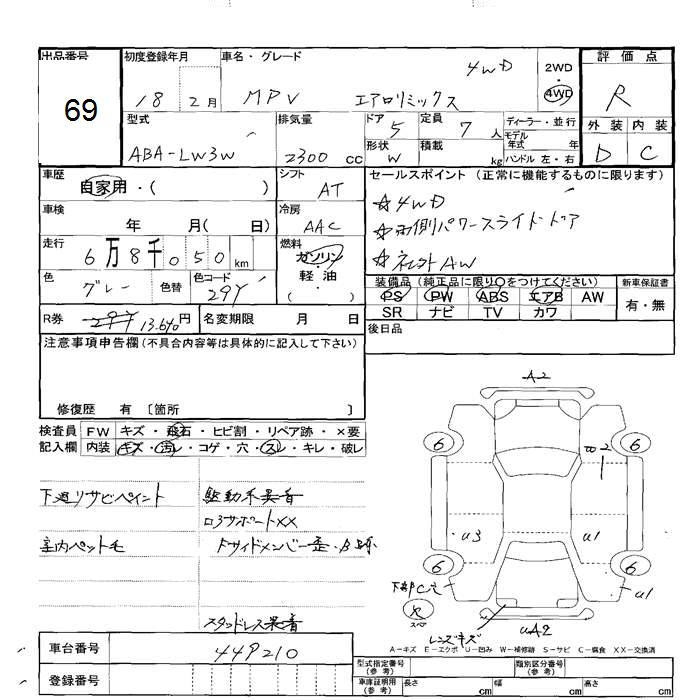 出品番号
69
初度登録年月
18 2月
車名・グレード
4WD
MPV エアロリミックス
2WD
・
4WD
評価点
R
外装 内装
D C
型式
ABA-LW3W
排気量
2300 cc
ドア 5
定員 7 人
形状 W
積載 kg
ディーラー・並行
モデル年式 年
ハンドル 左・右
車歴
自家用・( )
シフト
AT
車検
年 月( 日)
冷房
AAC
走行
6万8千050 km
燃料
ガソリン
軽・油
( )
色
グレー
色替
色コード
29Y
R券
13.640円
名変期限 月 日
セールスポイント (正常に機能するものに限ります)
☆4WD
☆両側パワースライドドア
☆ AW
装備品 (純品に限り○をつけてください)
PS PW ABS エアB AW
SR ナビ TV カワ
新車保証書
有・無
後日品
注意事項申告欄(不具合内容等は具体的に記入して下さい)
修復歴 有 〔箇所 〕
検査員記入欄
FW キズ・飛石・ヒビ割・リペア跡・×要
内装 キズ・汚レ・コゲ・穴・スレ・キレ・破レ
下廻リサビペイント
駆動系異音
コアサポートXX
室内ペット毛
Fサイドメンバー歪・
スタッドレス異音
車台番号
449210
登録番号
A2
6
6
W2
U3
U1
6
6
下部C穴
U1
UA2
レンズキズ
A-キズ E-エクボ U-凹み W-補修跡 S-サビ C-腐食 XX-交換済
型式指定番号
(参考)
類別区分番号
(参考)
車庫証明用
(参考)
長さ cm
幅 cm
高さ cm